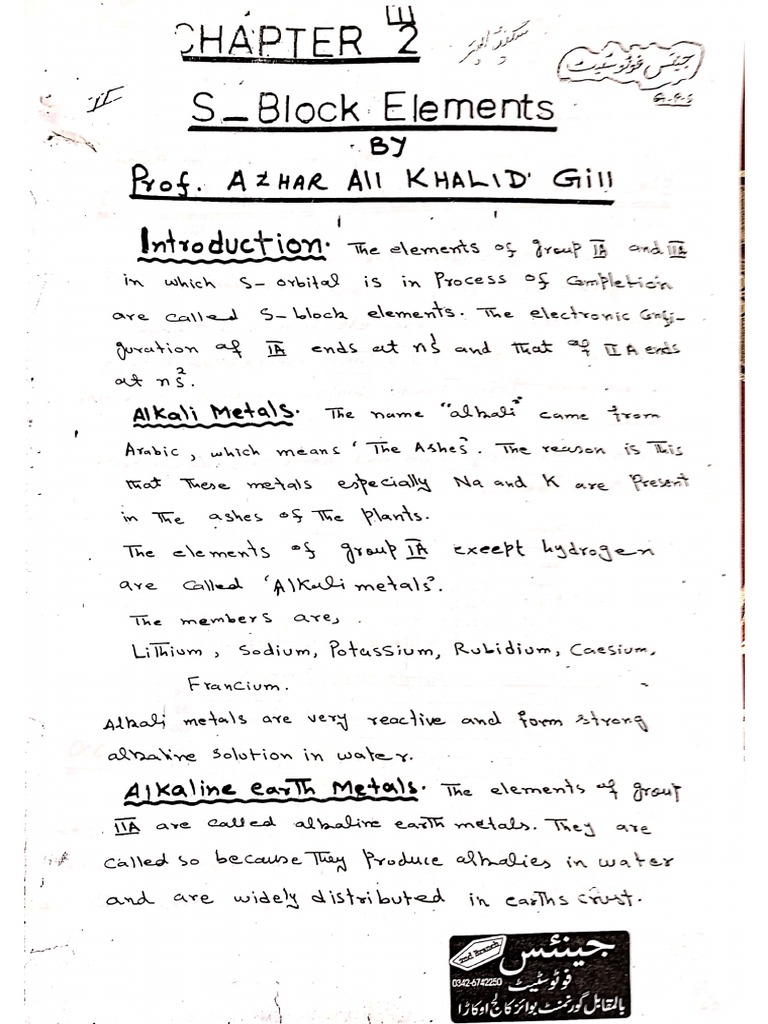 CHAPTER 2
سیکنڈ ایئر
جینئس فوٹوسٹیٹ
S_Block Elements
BY
Prof. AZHAR Ali KHALID Gill
Introduction. The elements of group IA and IIA
in which S-orbital is in Process of Completion
are called S-block elements. The electronic Confi-
guration of IA ends at nS¹ and that of IIA ends
at nS².
Alkali Metals. The name "alkali" came from
Arabic, which means 'The Ashes'. The reason is This
that These metals especially Na and K are Present
in The ashes of The plants.
The elements of group IA except hydrogen
are called 'Alkali metals'.
The members are,
Lithium, Sodium, Potassium, Rubidium, Caesium,
Francium.
Alkali metals are very reactive and form strong
alkaline solution in water.
Alkaline earth Metals. The elements of group
IIA are called alkaline earth metals. They are
called so because They Produce alkalies in water
and are widely distributed in earths crust.
جینئس
2nd Branch
فوٹوسٹیٹ
0342-6742250
بالمقابل گورنمنٹ بوائز کالج اوکاڑا